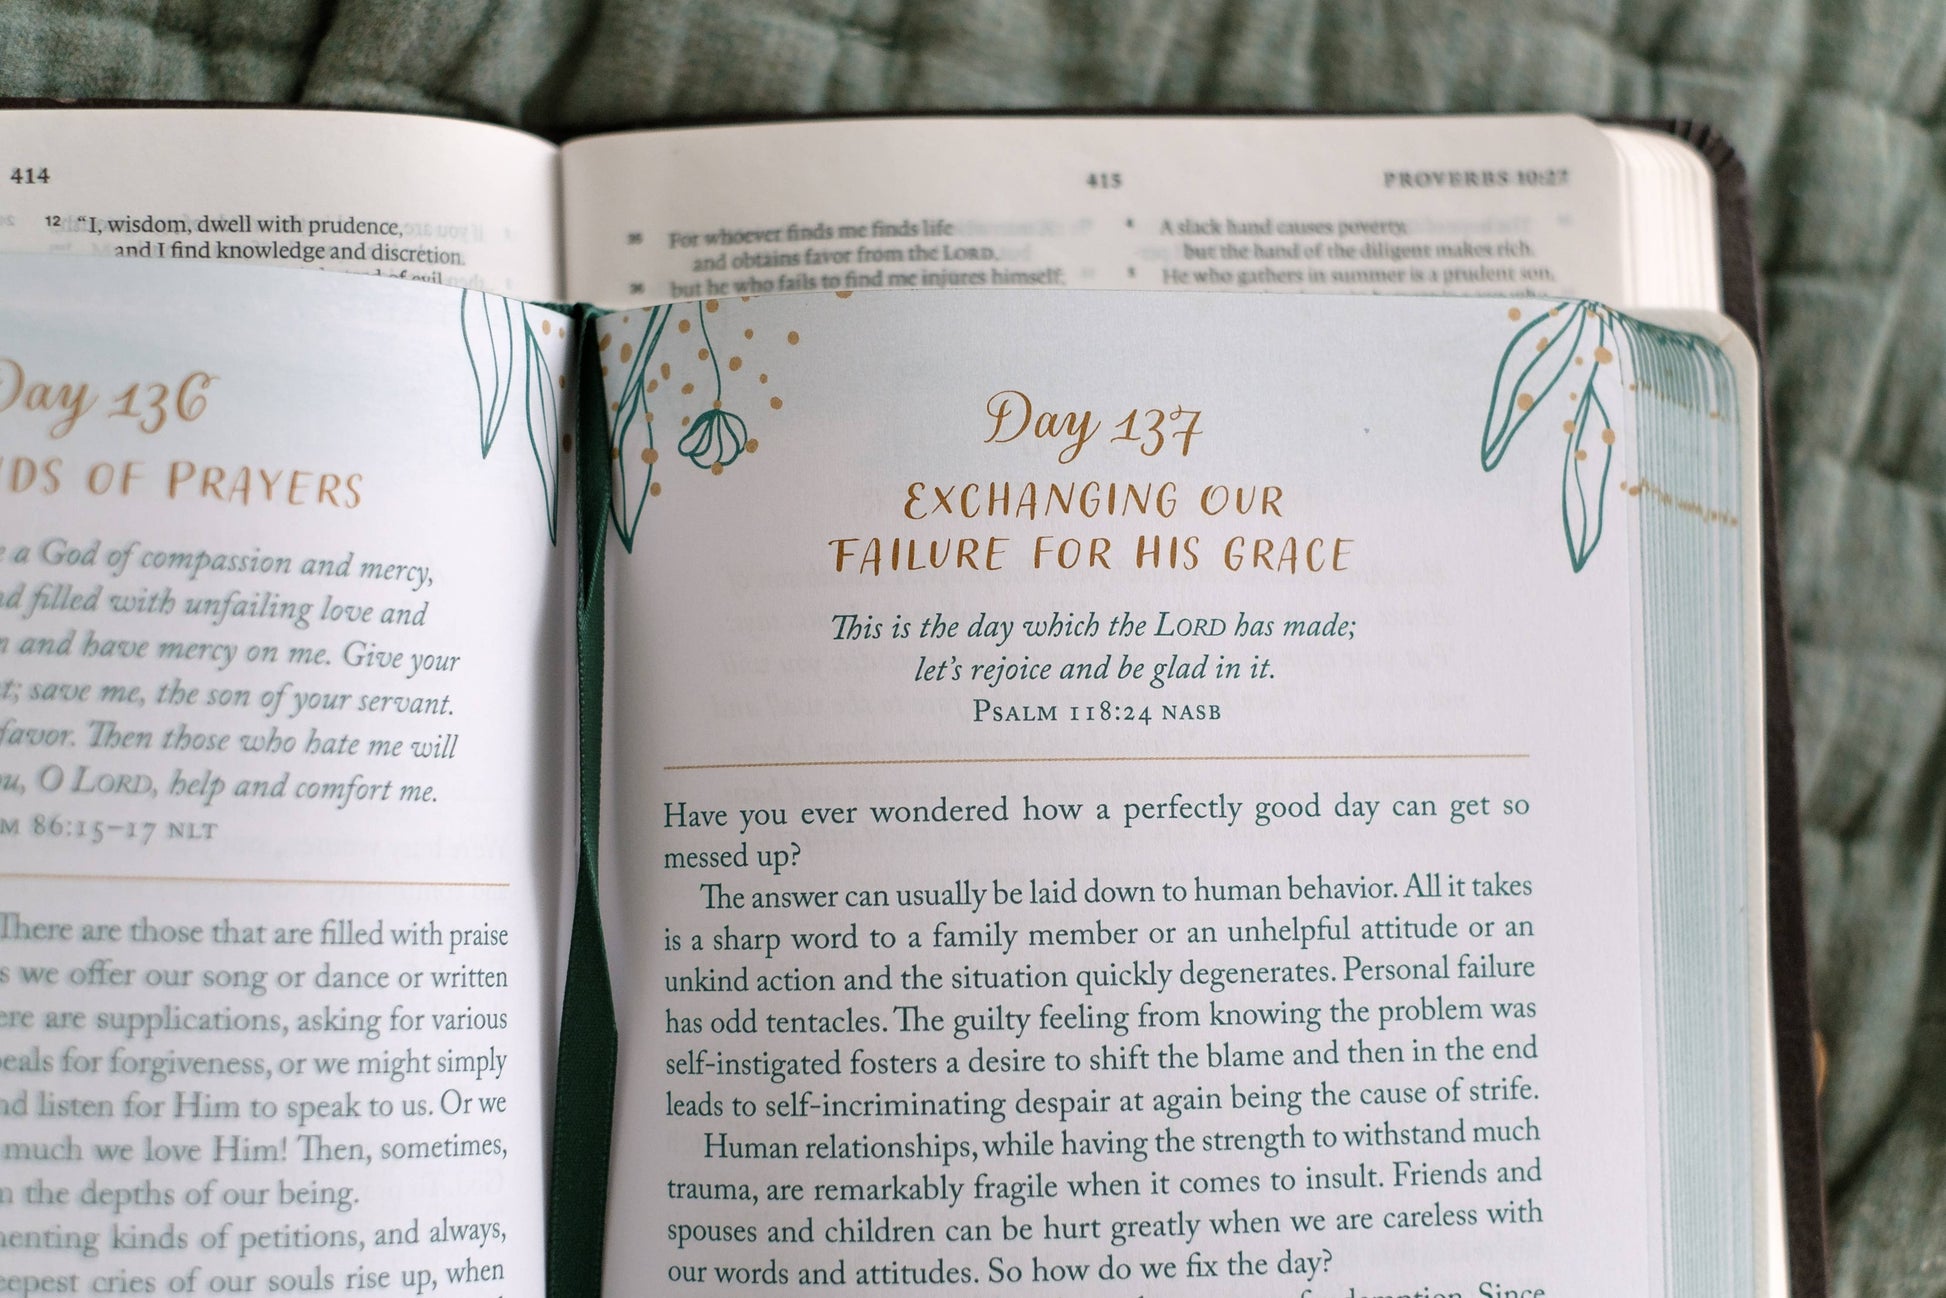 414
12 “I, wisdom, dwell with prudence,
and I find knowledge and discretion.
of evil
415
PROVERBS 10:27
35 For whoever finds me finds life
and obtains favor from the LORD,
36 but he who fails to find me injures himself;
4 A slack hand causes poverty,
but the hand of the diligent makes rich.
5 He who gathers in summer is a prudent son,
Day 136
OF PRAYERS
a God of compassion and mercy,
filled with unfailing love and
and have mercy on me. Give your
save me, the son of your servant.
favor. Then those who hate me will
O LORD, help and comfort me.
86:15–17 NLT
There are those that are filled with praise
we offer our song or dance or written
are supplications, asking for various
for forgiveness, or we might simply
listen for Him to speak to us. Or we
much we love Him! Then, sometimes,
the depths of our being.
kinds of petitions, and always,
cries of our souls rise up, when
Day 137
EXCHANGING OUR
FAILURE FOR HIS GRACE
This is the day which the LORD has made;
let’s rejoice and be glad in it.
PSALM 118:24 NASB
Have you ever wondered how a perfectly good day can get so
messed up?
The answer can usually be laid down to human behavior. All it takes
is a sharp word to a family member or an unhelpful attitude or an
unkind action and the situation quickly degenerates. Personal failure
has odd tentacles. The guilty feeling from knowing the problem was
self-instigated fosters a desire to shift the blame and then in the end
leads to self-incriminating despair at again being the cause of strife.
Human relationships, while having the strength to withstand much
trauma, are remarkably fragile when it comes to insult. Friends and
spouses and children can be hurt greatly when we are careless with
our words and attitudes. So how do we fix the day?
Since